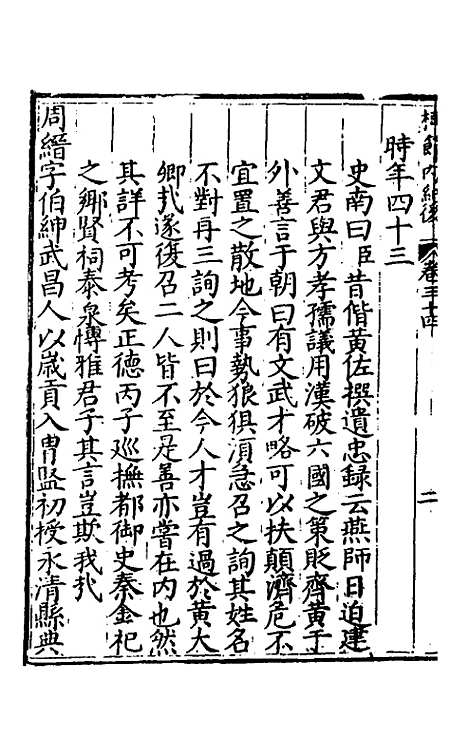 時年四十三
史南曰臣昔偕黃佐撰遺忠録云燕師日迫建
文君與方孝孺議用漢破六國之策貶齊黃于
外善言于朝曰有文武才略可以扶顛濟危不
宜置之散地今事勢狼狽湏急召之詢其姓名
不對再三詢之則曰於今人才豈有過於黃大
卿㢤遂復召二人皆不至是善亦嘗在内也然
其詳不可考矣正德丙子廵撫都御史秦金祀
之鄉賢祠泰泉愽雅君子其言豈欺我㢤
周縉字伯紳武昌人以歲貢入胄監初授永清縣典
卷三十四
二